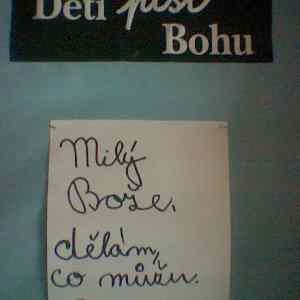 Děti píší
Bohu
Milý
Bože,
dělám,
co můžu.